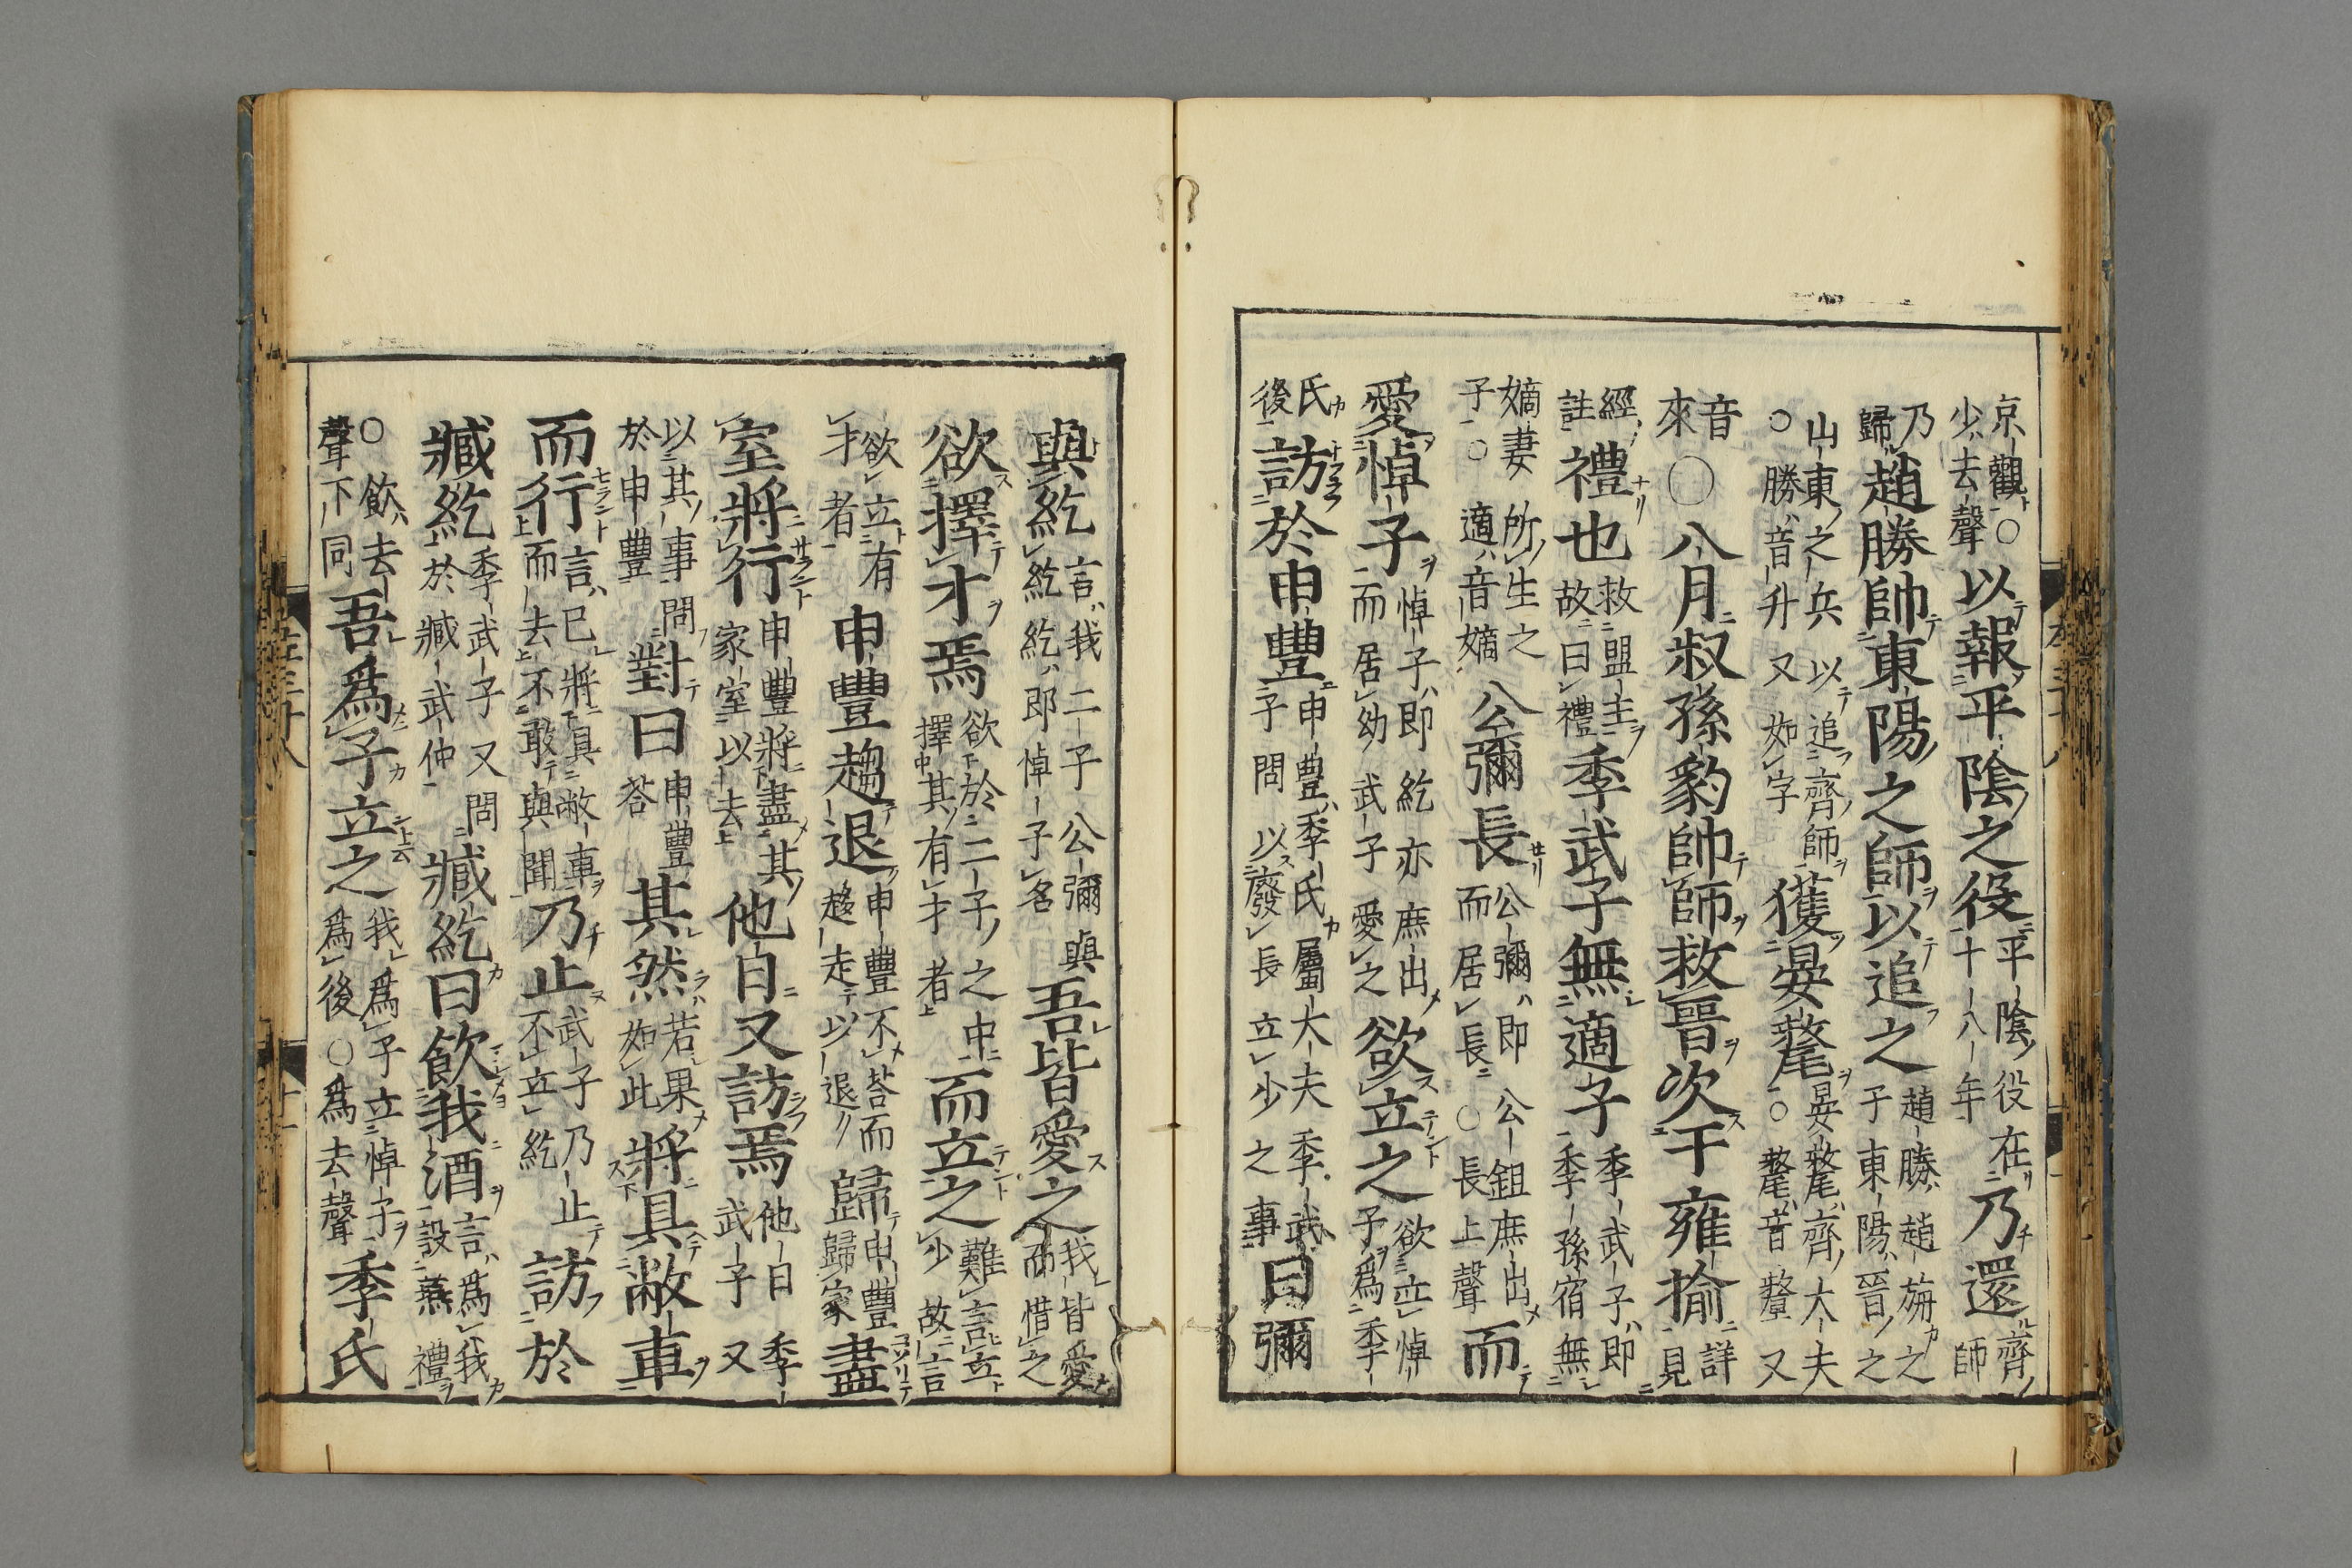 京觀○少去聲以報平陰之役平陰役在十八年乃還齊師
乃歸趙勝帥東陽之師以追之趙勝趙旃之子東陽晉之
山東之兵以追齊師○勝音升又如字獲晏氂晏氂齊大夫○氂音釐又
音來○八月叔孫豹帥師救晉次于雍揄詳見
經註禮也救盟主故曰禮季武子無適子季武子即季孫宿無
嫡妻所生之子○適音嫡公彌長公彌即公鉏庶出而居長○長上聲而
愛悼子悼子即紇亦庶出而居幼武子愛之欲立之欲立悼子爲季
氏後訪於申豐申豐季氏屬大夫季武子問以廢長立少之事曰彌
與紇言我二子公彌與紇紇即悼子名吾皆愛之我皆愛而惜之
欲擇才焉欲於二子之中擇其有才者而立之難言立少故言
欲立有才者申豐趨退申豐不荅而趨走以退歸申豐歸家盡
室將行申豐將盡其家室以去他日又訪焉他日季武子又
以其事問於申豐對曰申豐荅其然若果如此將具敝車
而行言已將具敝車而去不敢與聞乃止武子乃止不立紇訪於
臧紇季武子又問於臧武仲臧紇曰飲我酒言爲我設燕禮
○飲去聲下同吾爲子立之我爲子立悼子爲後○爲去聲季氏